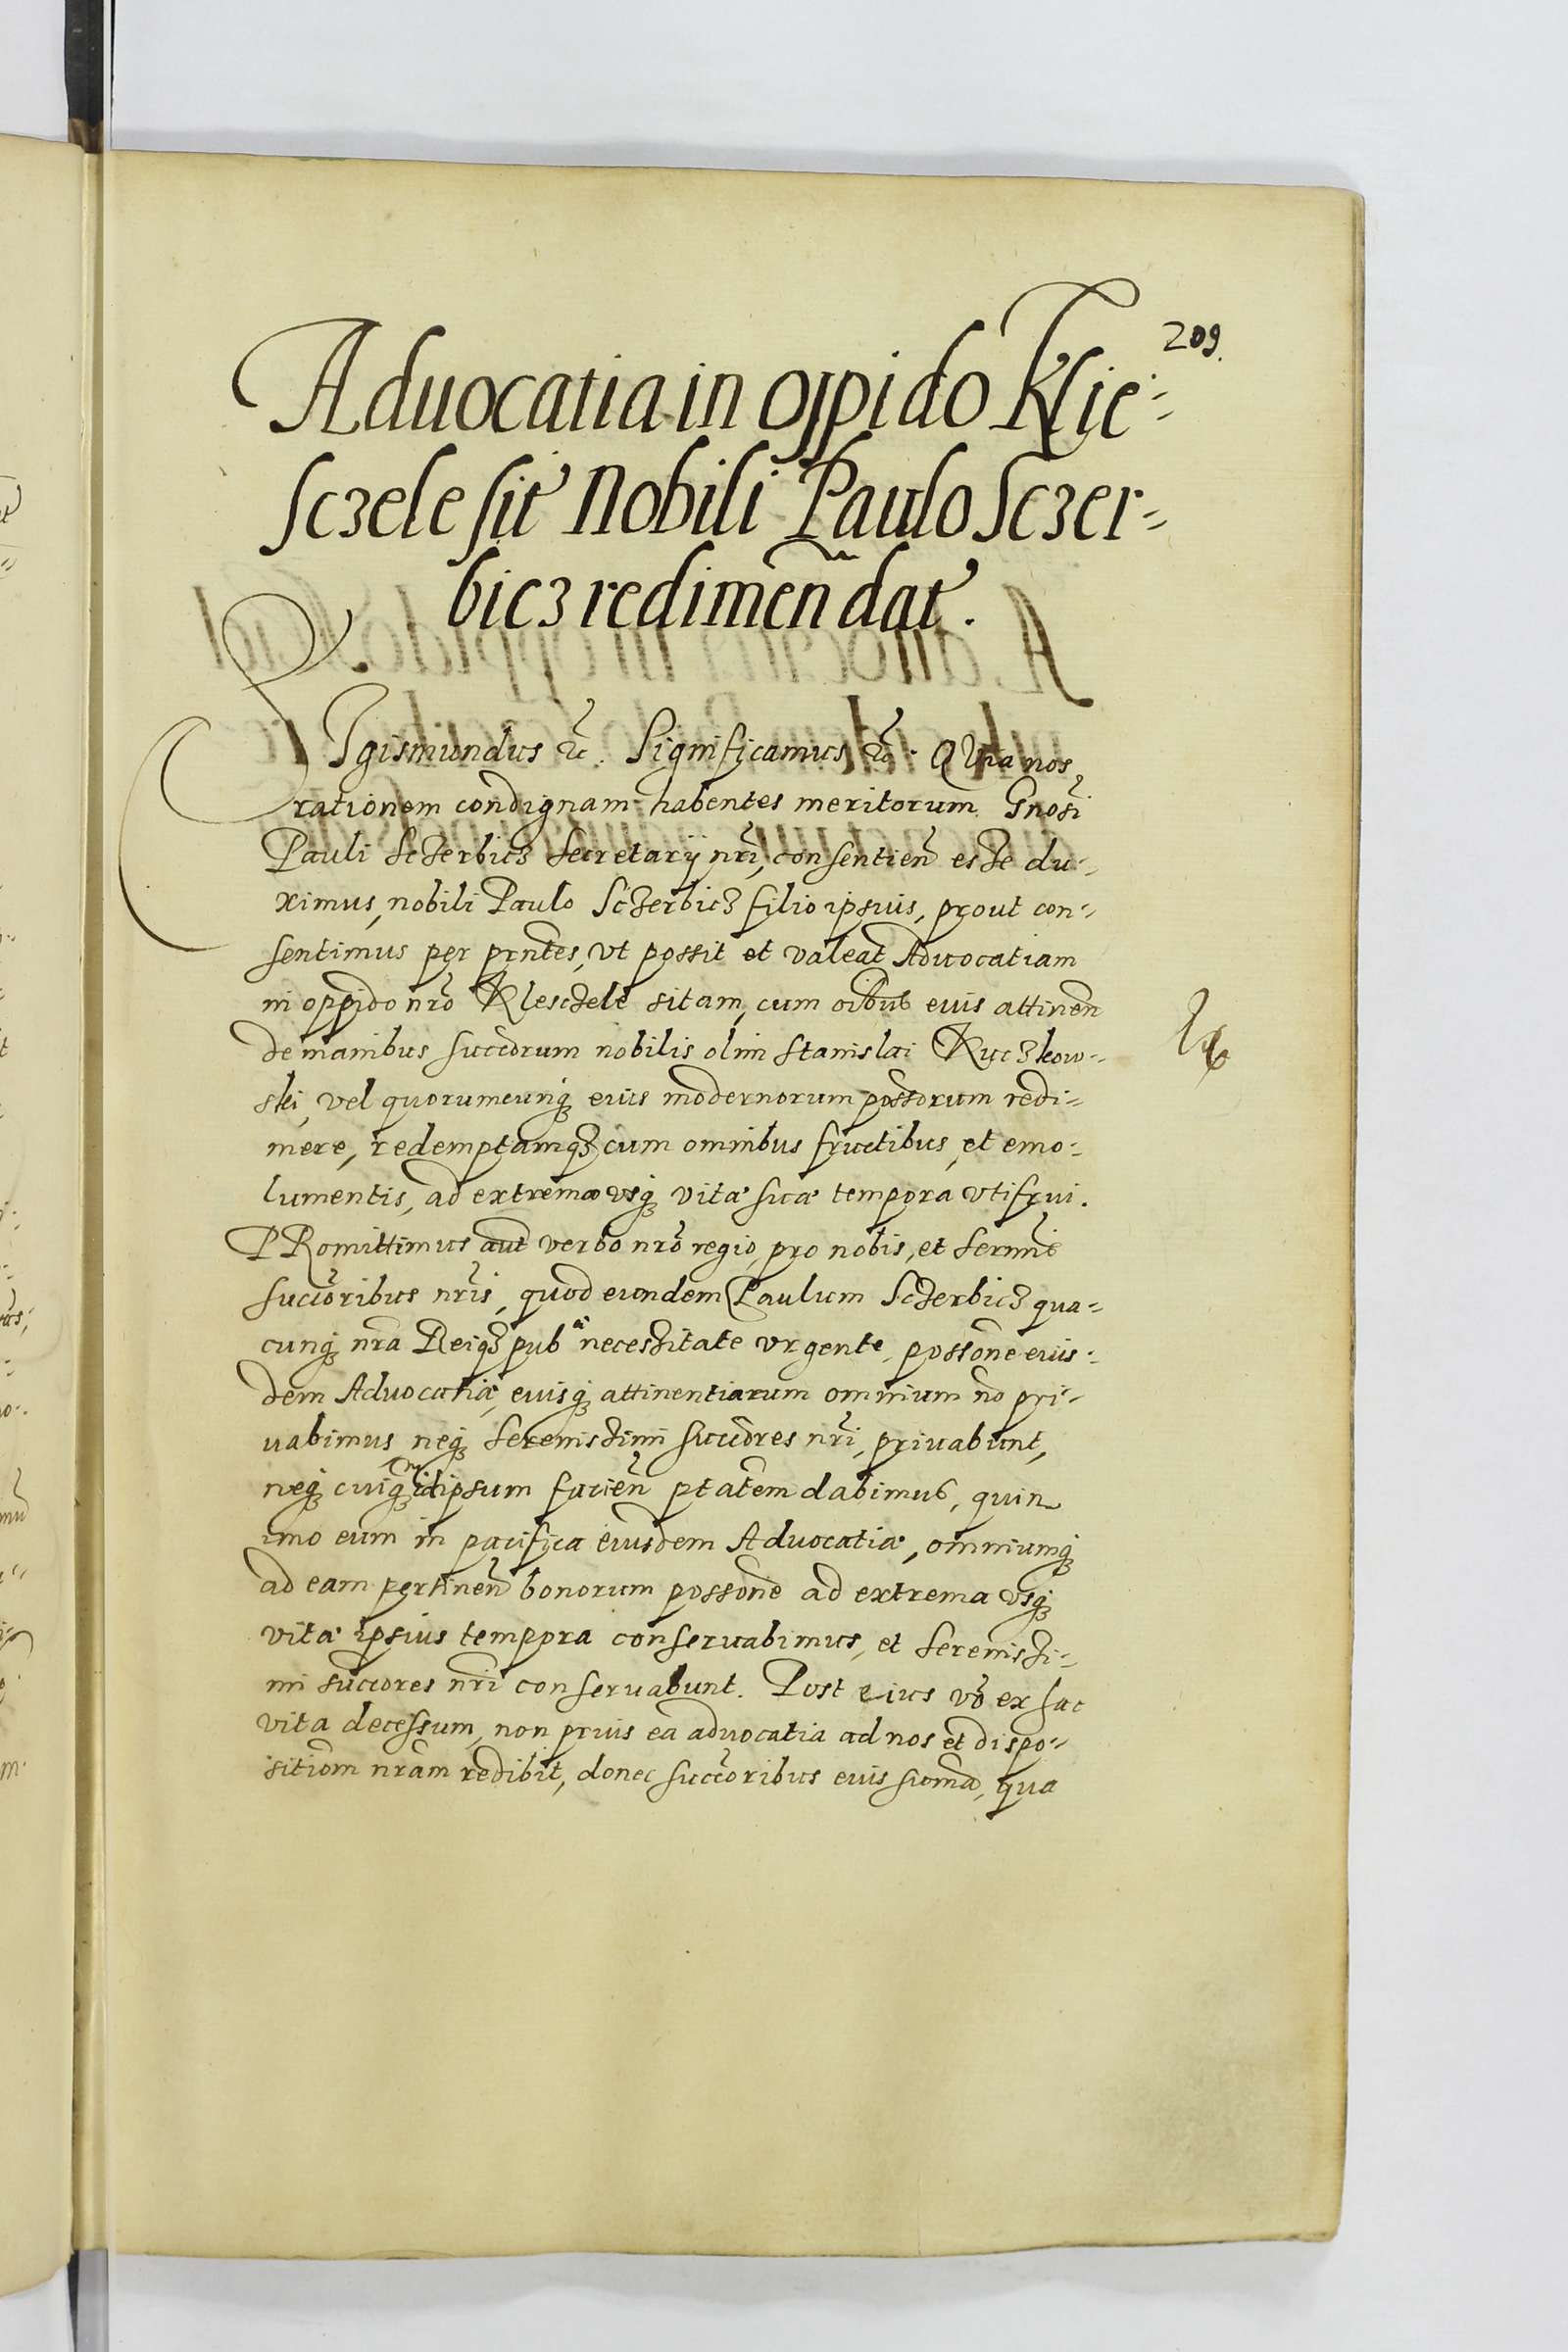 209.
Aduocatia in oppido Klie-
sczele sit Nobili Paulo Sczer-
bicz redimeñ dat.
SIgismundus &c. Significamus &c. QVia nos
rationem condignam habentes meritorum Gnosi
Pauli Sczerbicz Secretarij nri, consentien esse du-
ximus, nobili Paulo Sczerbicz filio ipsius, prout con-
sentimus per prntes, vt possit et valeat Aduocatiam
in oppido nro Klesczele sitam, cum oibus eius attinen
de manibus succorum nobilis olim Stanislai Kuczkow-
ski, vel quorumcunq eius modernorum possorum redi-
mere, redemptamq cum omnibus fructibus, et emo-
lumentis, ad extrema vsq vitæ suæ tempora vtifrui.
PRomittimus aut verbo nro regio, pro nobis, et Sermis
succoribus nris, quod eundem Paulum Sczerbicz qua-
cunq nra Reiq pub ca necessitate vrgente, possone eius-
dem Aduocatiæ, eiusq attinentiarum omnium no pri-
uabimus neq Serenissimi succores nri, priuabunt,
neq cuiq idipsum facien ptatem dabimus, quin
imo eum in pacifica eiusdem Aduocatiæ, omniumq
ad eam pertinen bonorum possone ad extrema vsq
vitæ ipsius tempora conseruabimus, et Serenissi-
mi succores nri conseruabunt. Post eius vo ex hac
vita decessum, non prius ea aduocatia ad nos et dispo-
sitiom nram redibit, donec succoribus eius suma, qua